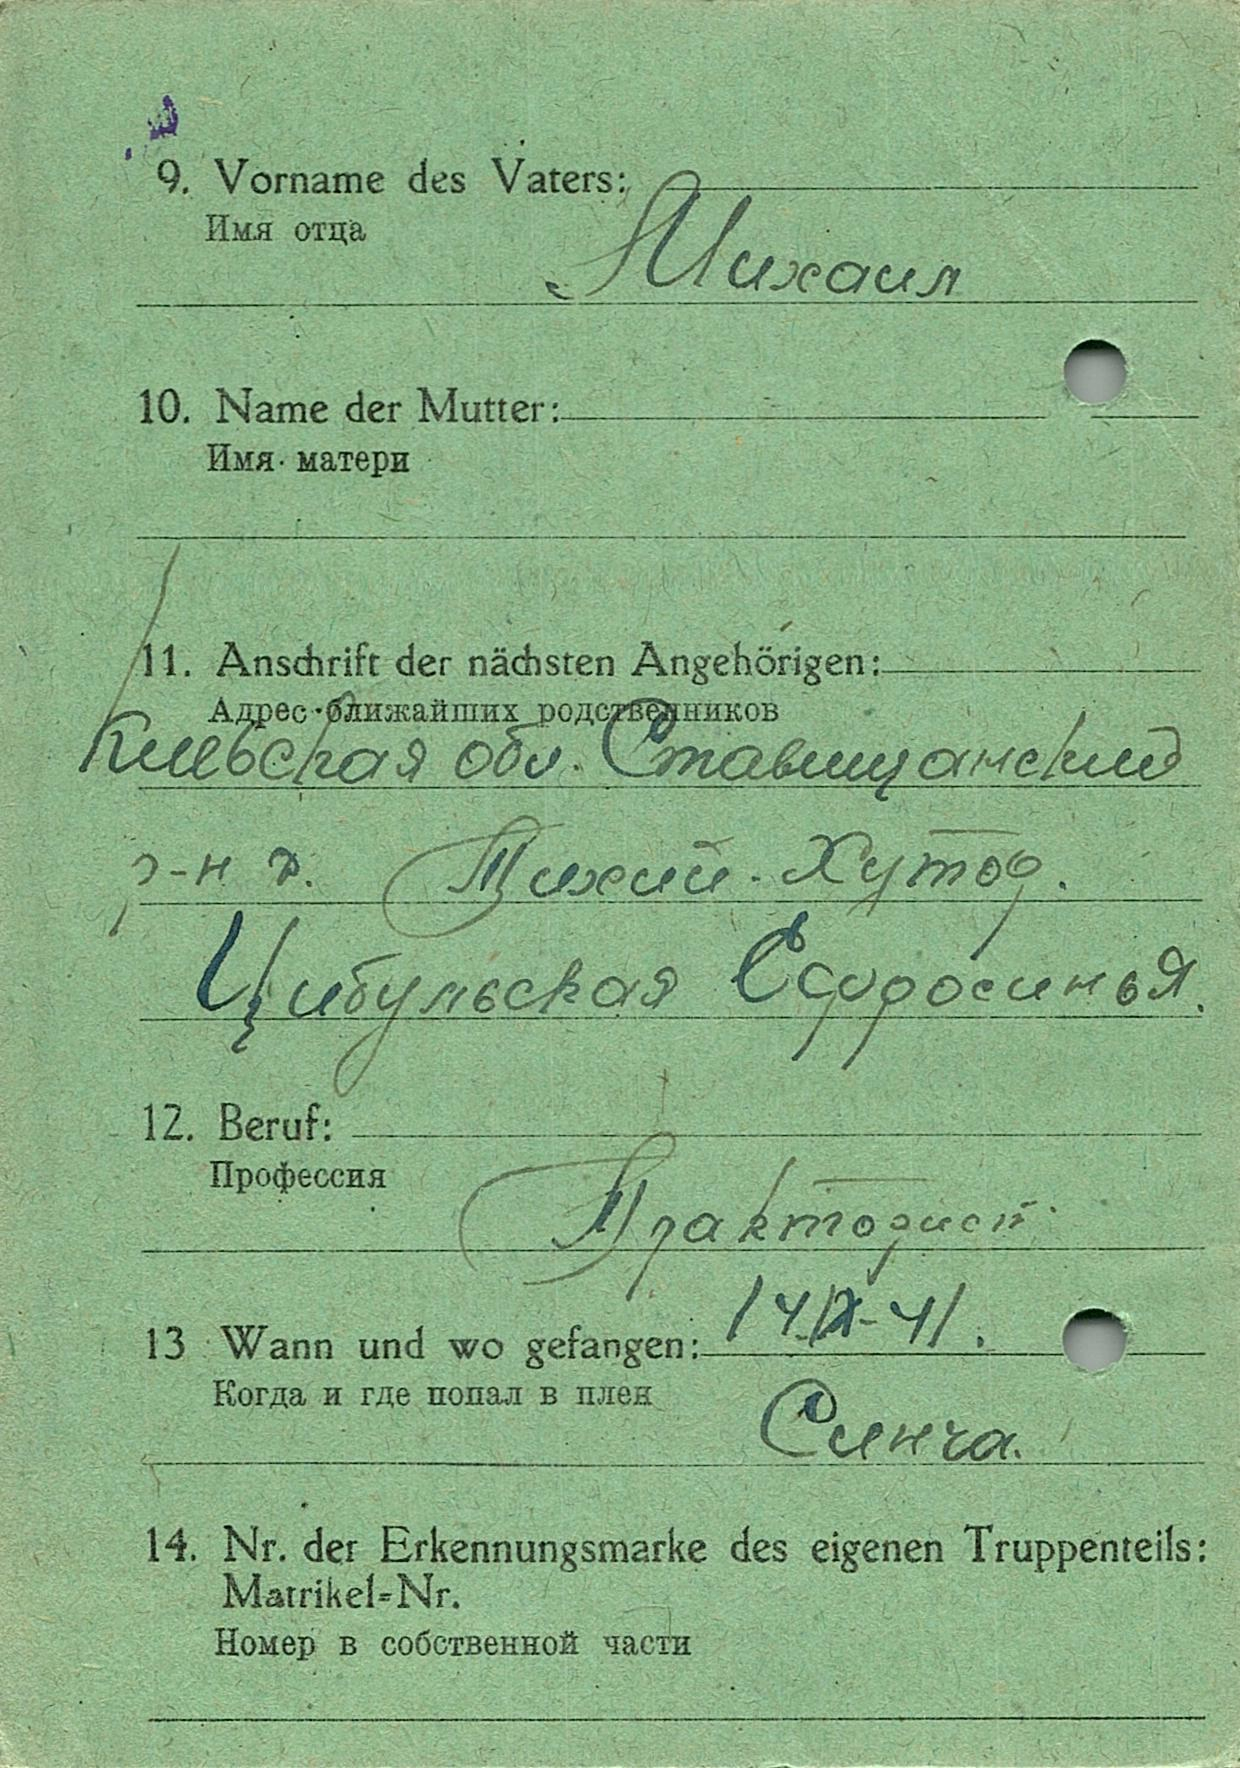 9. Vorname des Vaters:
Имя отца
Михаил
10. Name der Mutter:
Имя матери
11. Anschrift der nächsten Angehörigen:
Адрес ближайших родственников
Киевская обл. Ставищанский
р-н д. Тихий-Хутор.
Цибульская Ефросинья.
12. Beruf:
Профессия
Тракторист
13 Wann und wo gefangen: 14/IX-41.
Когда и где попал в плен
Синча.
14. Nr. der Erkennungsmarke des eigenen Truppenteils:
Matrikel=Nr.
Номер в собственной части